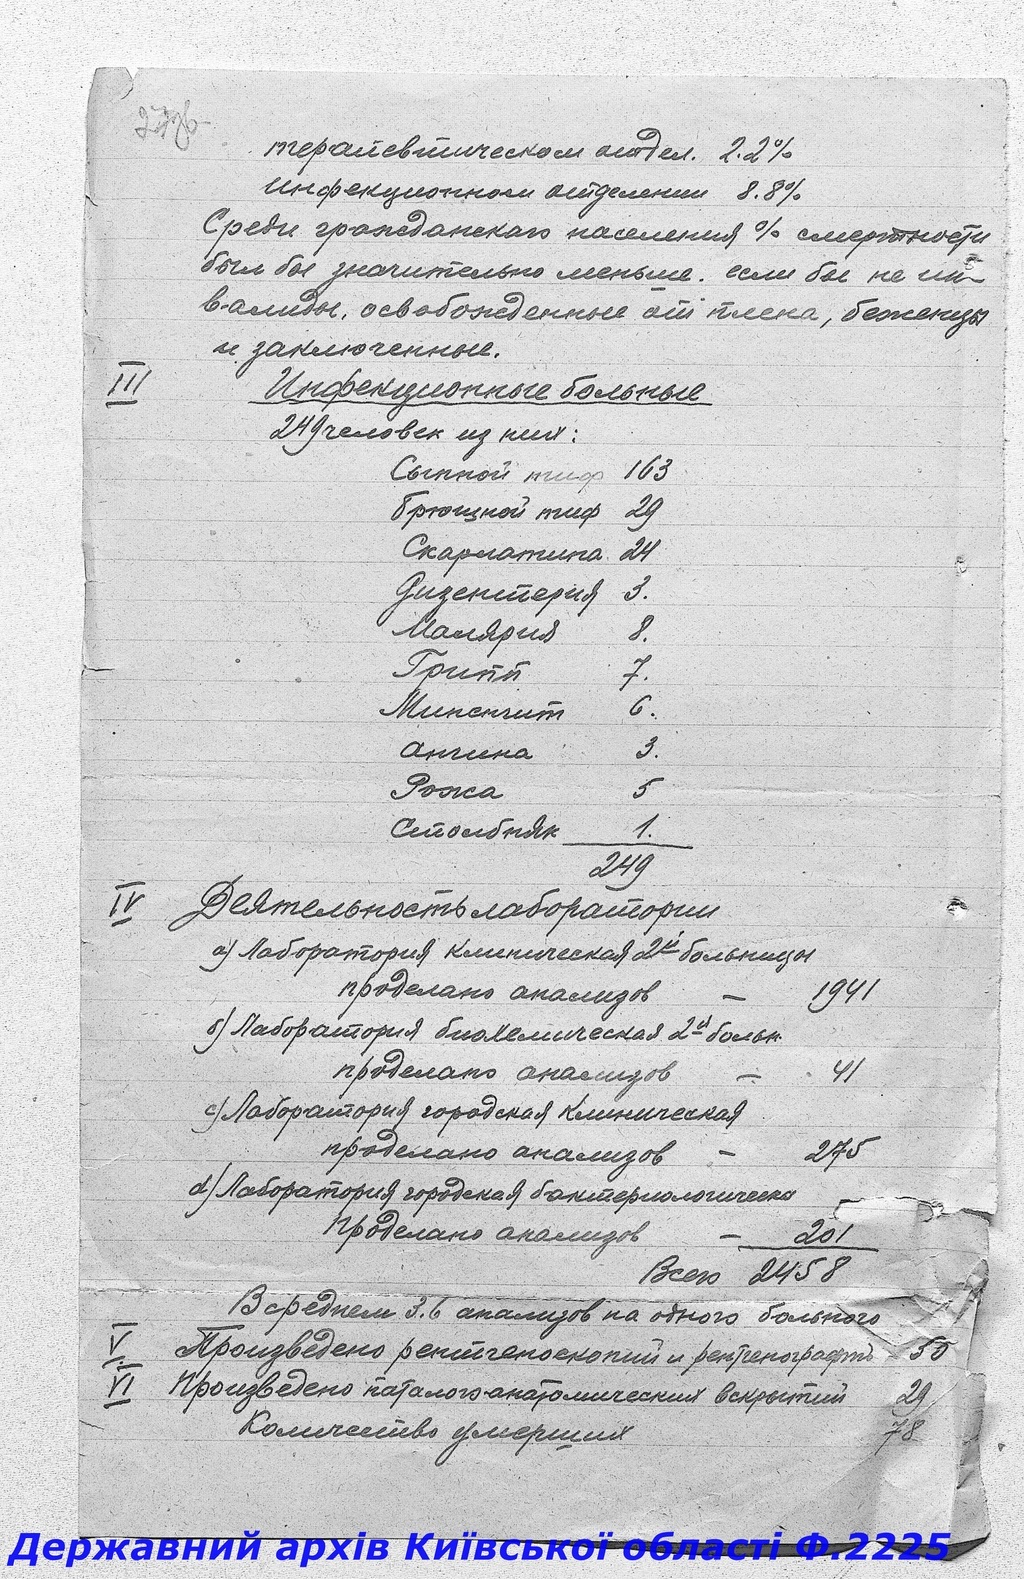 терапевтическом отдел. 2.2%
инфекционном отделении 8.8%
Среди гражданского населения % смертности
был бы значительно меньше. если бы не ин-
валиды, освобожденные от плена, беженцы
и заключенные.
III Инфекционные больные
249 человек из них:
Сыпной тиф 163
брюшной тиф 29
Скарлатина 24
Дизентерия 3.
Малярия 8.
Грипп 7.
Миненгит 6.
ангина 3.
Рожа 5
Столбняк 1.
249
IV Деятельность лаборатории
а) Лаборатория клиническая 2й больницы
проделано анализов — 1941
б) Лаборатория биохемическая 2й больн.
проделано анализов — 41
с) Лаборатория городская клиническая
проделано анализов — 275
d) Лаборатория городская бактериологическа
Проделано анализов — 201
Всего 2458
В среднем 3.6 анализов на одного больного
V. Произведено рентгеноскопий и рентгенографий 50
VI Произведено паталого-анатомических вскрытий 29
Количество умерших 78
Державний архів Київської області Ф.2225